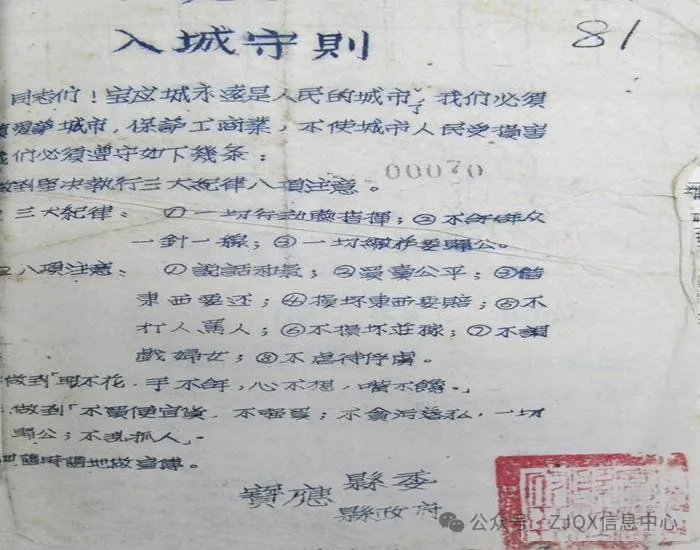 入城守則
81
同志们！宝应城永遠是人民的城市了，我们必須
愛護城市，保護工商業，不使城市人民受損害
我们必須遵守如下幾条：
00070
做到坚决执行三大紀律八項注意。
三大紀律：①一切行动聽指揮；②不拿群众
一針一線；③一切缴获要歸公。
八項注意：①說話和气；②買賣公平；③借
東西要还；④損坏東西要賠；⑤不
打人罵人；⑥不損坏莊稼；⑦不調
戲婦女；⑧不虐待俘虜。
做到「眼不花，手不拿，心不想，嘴不饞。」
做到「不買便宜货，不，不貪污自私，一切
歸公；不乱抓人」。
四隨時隨地做宣傳。
寶應縣委
縣政府
公众号·ZJQX信息中心